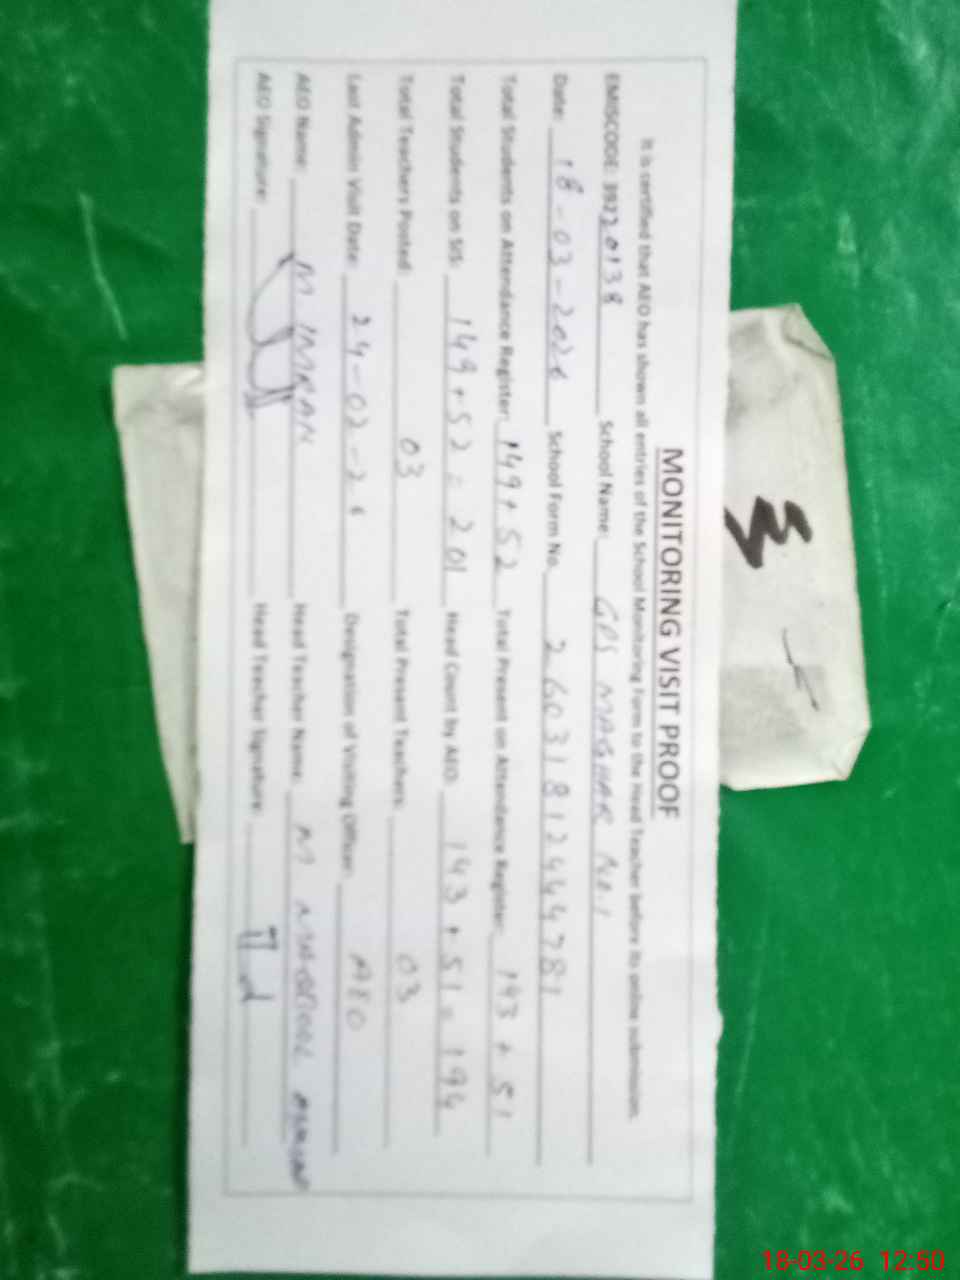 MONITORING VISIT PROOF
It is certified that AEO has shown all entries of the School Monitoring Form to the Head Teacher before its online submission.
EMISCODE: 39220138 School Name: GPS MAGHAR No.1
Date: 18-03-2026 School Form No. 2603181244781
Total Students on Attendance Register: 149+52 Total Present on Attendance Register: 143+51
Total Students on SIS: 149+52=201 Head Count by AEO: 143+51=194
Total Teachers Posted: 03 Total Present Teachers: 03
Last Admin Visit Date: 24-02-26 Designation of Visiting Officer: AEO
AEO Name: M IMRAN Head Teacher Name: M
AEO Signature: Head Teacher Signature:
18-03-26 12:50